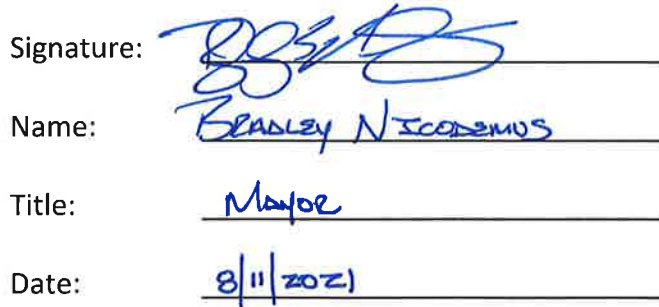 Signature:
Name: BRADLEY NICODEMUS
Title: MAYOR
Date: 8/11/2021